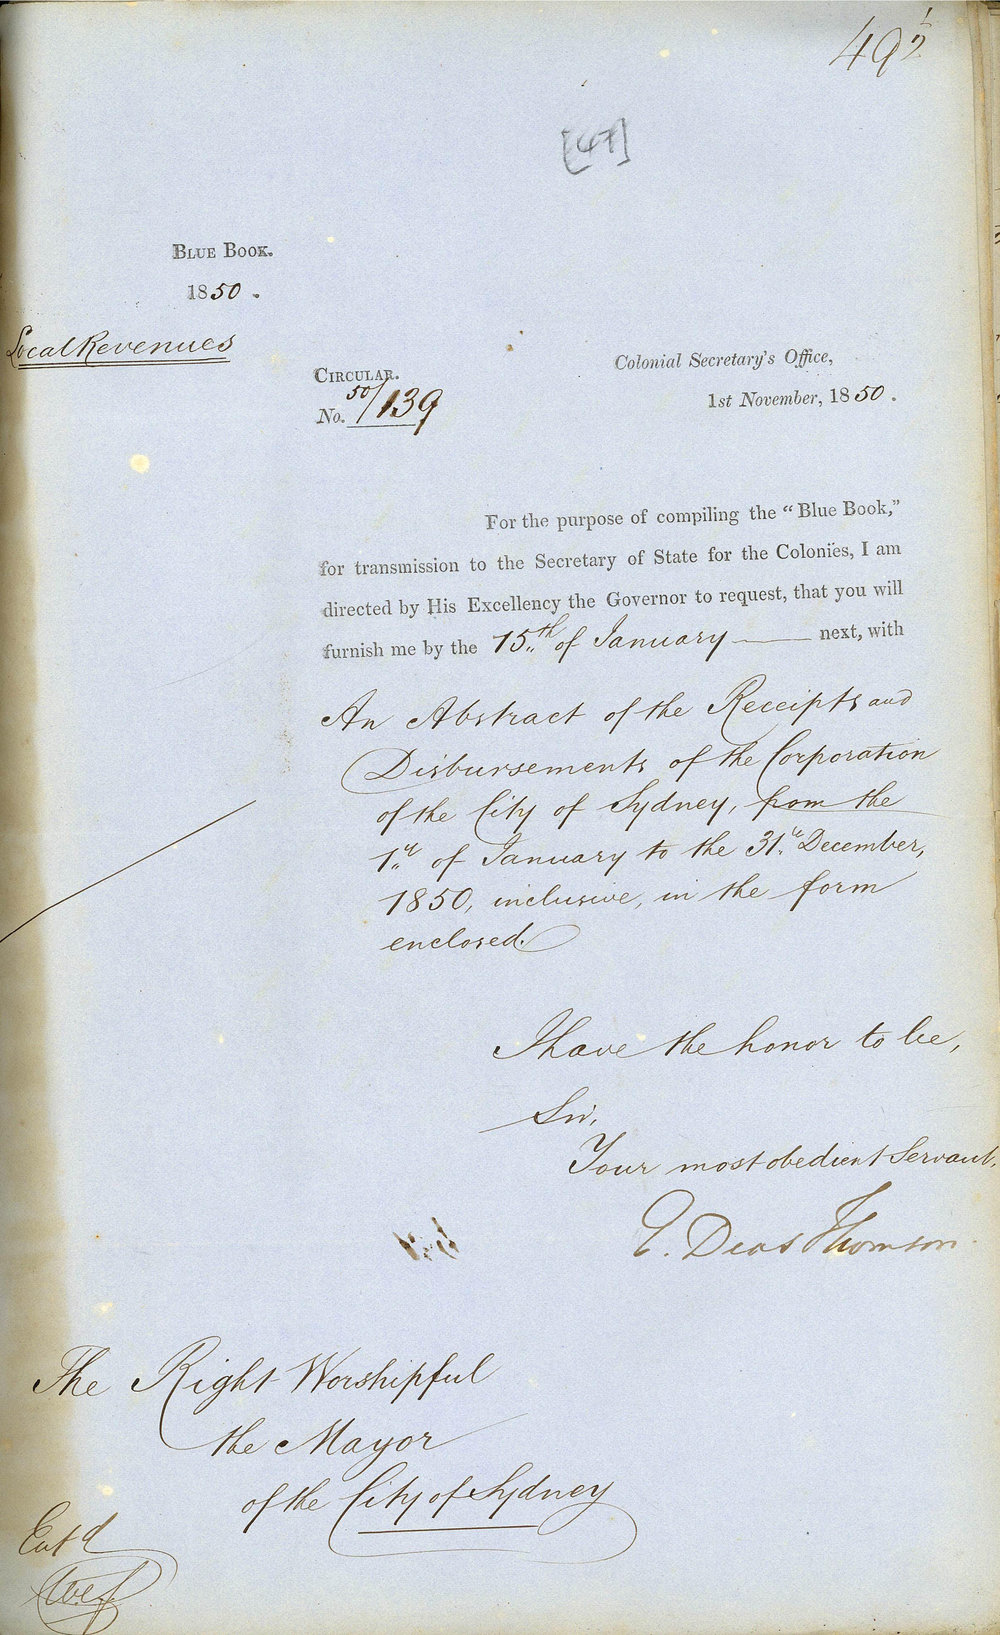 49 1/2
[47]
BLUE BOOK.
1850.
Local Revenues
CIRCULAR.
No. 50/139
Colonial Secretary's Office,
1st November, 1850.
For the purpose of compiling the "Blue Book,"
for transmission to the Secretary of State for the Colonies, I am
directed by His Excellency the Governor to request, that you will
furnish me by the 15th of January —— next, with
An Abstract of the Receipts and
Disbursements of the Corporation
of the City of Sydney, from the
1st of January to the 31st December,
1850, inclusive, in the form
enclosed.
I have the honor to be,
Sir,
Your most obedient Servant,
E. Deas Thomson
The Right Worshipful
the Mayor
of the City of Sydney
Entd